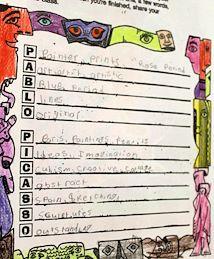 a few words,
you're finished, share your
P Painter, prints "Rose Period
A artist, artistic
B Blue Period
L lines
O original
P Paris, Paintings, Pencils
I Ideas, Imagination
C cubism, creative, collage
A abstract
S Spain, Sketching
S Sculptures
O outstanding